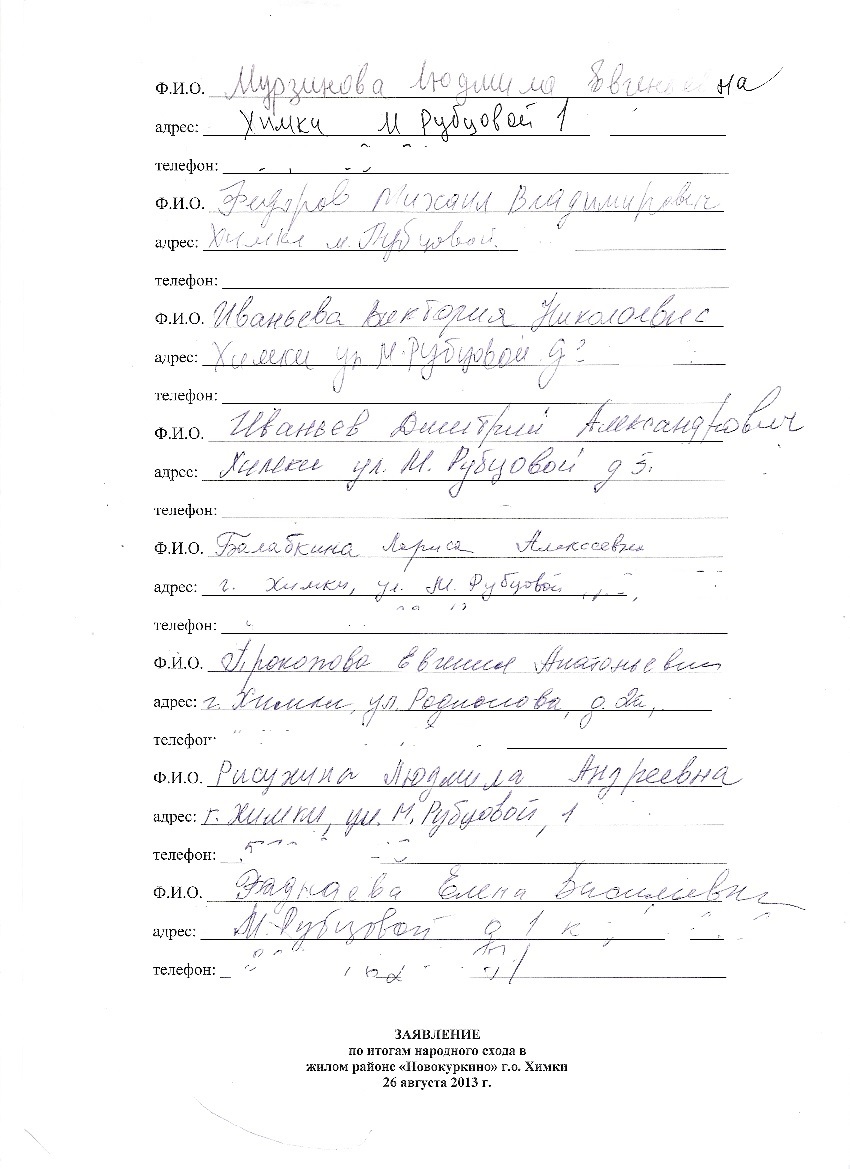 Ф.И.О. Мурзинова Людмила Евгеньевна
адрес: Химки М Рубцовой 1
телефон:
Ф.И.О. Федоров Михаил Владимирович
адрес: Химки м. Рубцовой.
телефон:
Ф.И.О. Иваньева Виктория Николаевна
адрес: Химки ул М. Рубцовой д
телефон:
Ф.И.О. Иваньев Дмитрий Александрович
адрес: Химки ул. М. Рубцовой д 5.
телефон:
Ф.И.О. Балабкина Лариса Алексеевна
адрес: г. Химки, ул. М. Рубцовой
телефон:
Ф.И.О. Прокопова Евгения Анатольевна
адрес: г. Химки, ул. Родионова, д. 2а,
телефон
Ф.И.О. Людмила Андреевна
адрес: г. Химки, ул. М. Рубцовой, 1
телефон:
Ф.И.О. Елена Васильевна
адрес: М. Рубцовой д 1 к
телефон:
ЗАЯВЛЕНИЕ
по итогам народного схода в
жилом районе «Новокуркино» г.о. Химки
26 августа 2013 г.